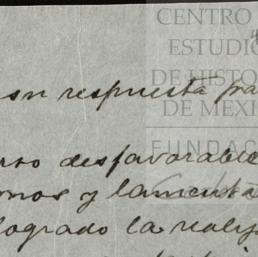 CENTRO
ESTUDIO
DE HISTO
DE MEXI
FUNDAC
su respuesta pa
rso desfavorable
mos y lamenta
logrado la realiz